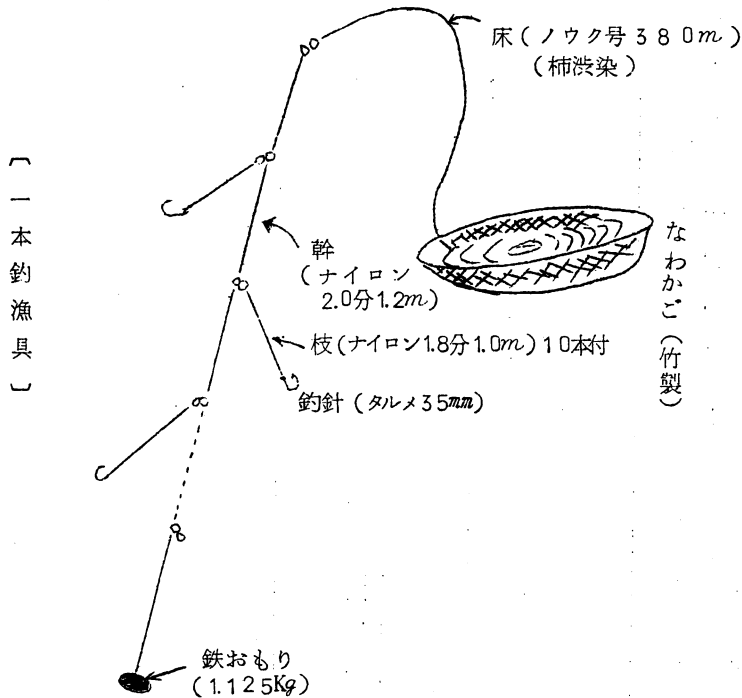 〔一本釣漁具〕
床(ノウク号380m)
(柿渋染)
なわかご(竹製)
幹
(ナイロン
2.0分1.2m)
枝(ナイロン1.8分1.0m)10本付
釣針(タルメ35mm)
鉄おもり
(1.125Kg)